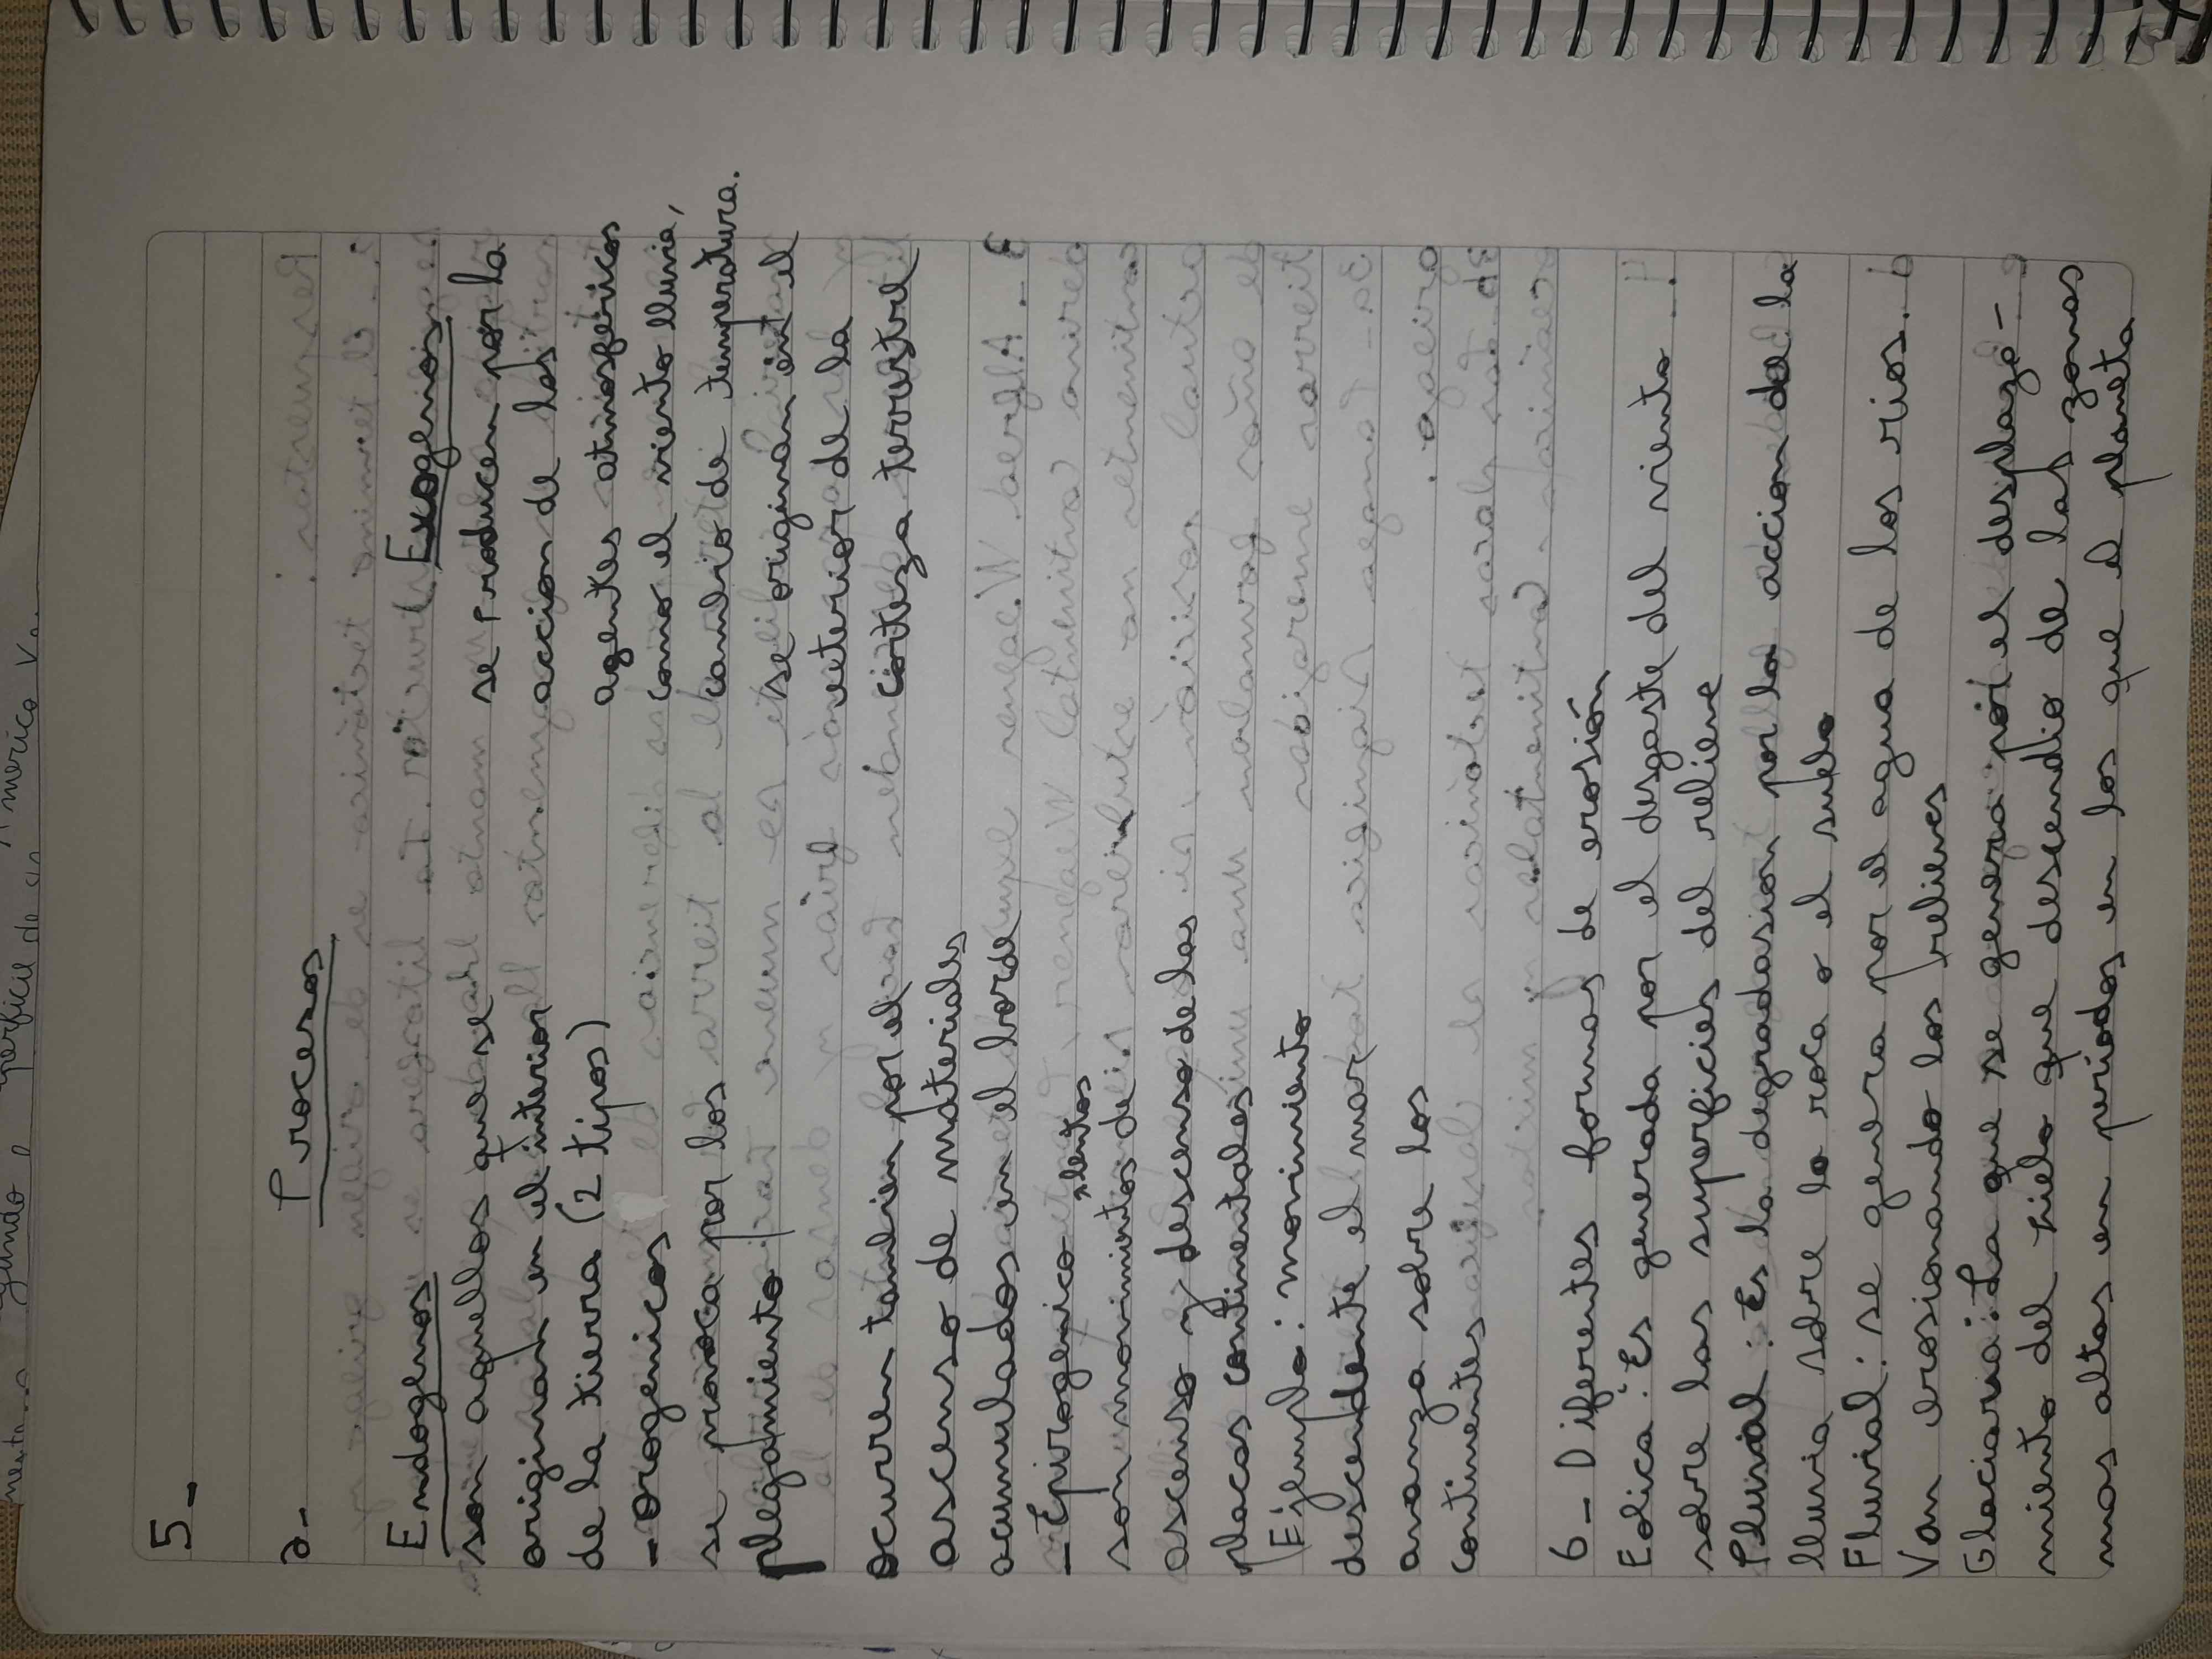 5-
a-
Procesos
Endogenos
son aquellos que se
originan en el interior
de la tierra (2 tipos)
- Orogenicos
se provoca por los
plegamiento
ocurren tambien por el
ascenso de materiales
acumulados en el borde
- Epirogenico lentos
son movimientos de
ascenso y descenso de las
placas continentales
Ejemplo: movimiento
descendente el mar
avanza sobre los
continentes
Exogenos
se producen por la
accion de los
agentes atmosfericos
como el viento lluvia,
cambio de temperatura.
se originan en el
exterior de la
corteza terrestre
6- Diferentes formas de erosión
Eolica: Es generada por el desgaste del viento
sobre las superficies del relieve
Pluvial: Es la degradasion por la accion de la
lluvia sobre la roca o el suelo
Fluvial: se genera por el agua de los rios.
Van erosionando los relieves
Glaciaria: La que se genera por el desplaza-
miento del hielo que desciendio de las zonas
mas altas en periodos en los que el planeta